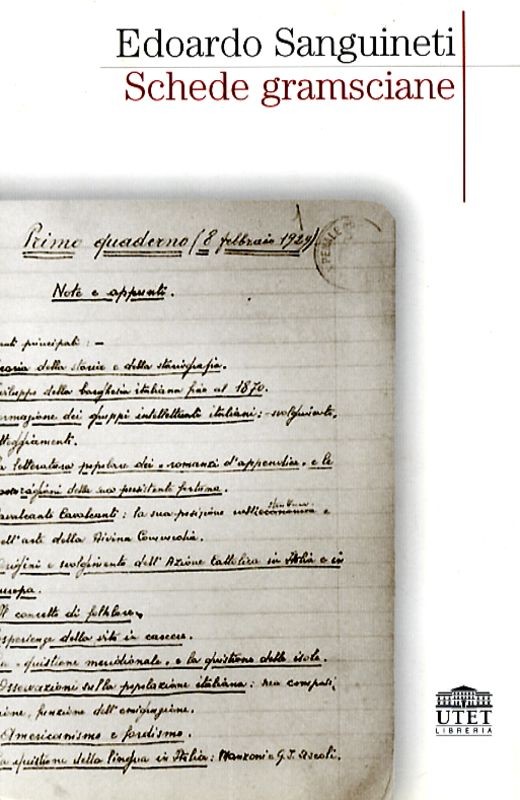 Edoardo Sanguineti
Schede gramsciane
1
Primo quaderno (8 febbraio 1929)
PENALE
Note e appunti.
enti principali: —
oria della storia e della storiografia.
viluppo della borghesia italiana fino al 1870.
ormazione dei gruppi intellettuali italiani: - svolgimento,
tteggiamenti.
a letteratura popolare dei "romanzi d'appendice" e le
ragioni della sua persistente fortuna.
avalcante Cavalcanti: la sua posizione nella struttura e
ell'arte della Divina Commedia.
rigini e svolgimento dell'Azione Cattolica in Italia e in
uropa.
Il concetto di folklore.
sperienze della vita in carcere.
a "quistione meridionale" e la quistione delle isole.
Osservazioni sulla popolazione italiana: sua composi,
ione, funzione dell'emigrazione.
Americanismo e fordismo.
a quistione della lingua in Italia: Manzoni e G. I. Ascoli.
UTET
LIBRERIA